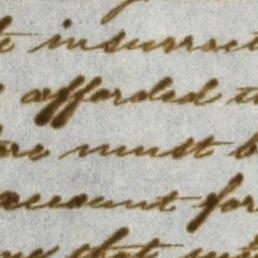 insurrect
afforded t
must b
account for
that